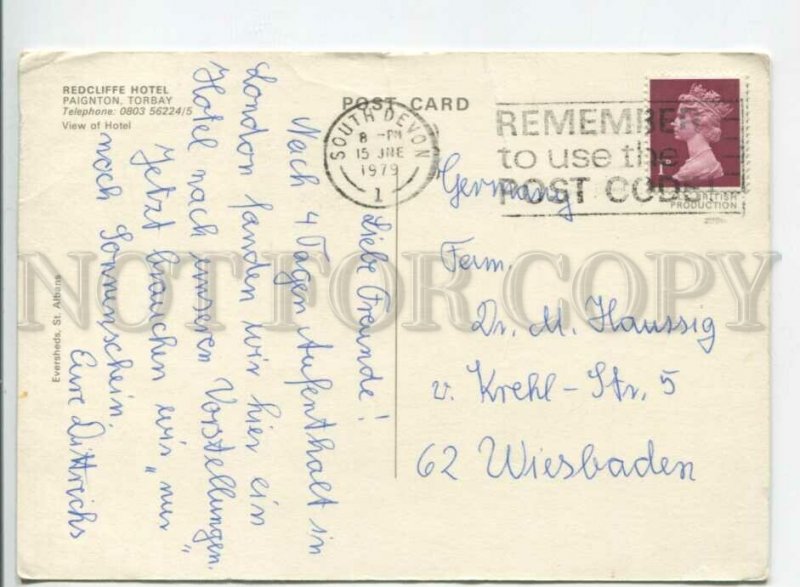 REDCLIFFE HOTEL
PAIGNTON, TORBAY
Telephone: 0803 56224/5
View of Hotel
POST CARD
SOUTH DEVON
8 - PM
15 JNE
1979
1
REMEMBER
to use the
POST CODE
BRITISH
PRODUCTION
Liebe Freunde!
Nach 4 Tagen Aufenthalt in
London fanden wir hier ein
Hotel nach unseren Vorstellungen.
Jetzt brauchen wir „nur"
noch Sonnenschein.
Eure Dittrichs
Germany
Fam.
Dr. M. Haussig
v. Krehl-Str. 5
62 Wiesbaden
Eversheds, St. Albans
NOT FOR COPY